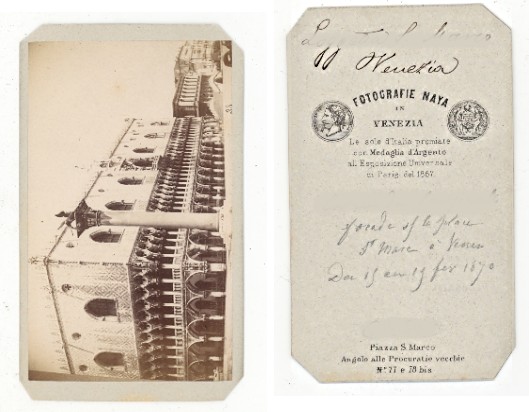 Venezia
FOTOGRAFIE NAYA
IN
VENEZIA
Le sole d'Italia premiate
con Medaglia d'Argento
al Esposizione Universale
di Paris del 1867.
facade place
St Marc à
Du 15 au 19 fev 1870
Piazza S. Marco
Angolo alle Procuratie vecchie
Nº 77 e 78 bis